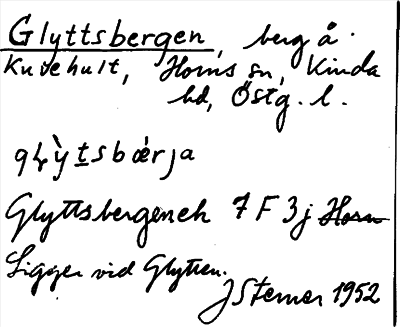 Glyttsbergen, berg å
Kuvehult, Horns sn, Kinda
hd, Östg. l.
glỳtsbærja
Glyttsbergen ek 7 F 3j Horn
Ligger vid Glytten.
J Sterner 1952